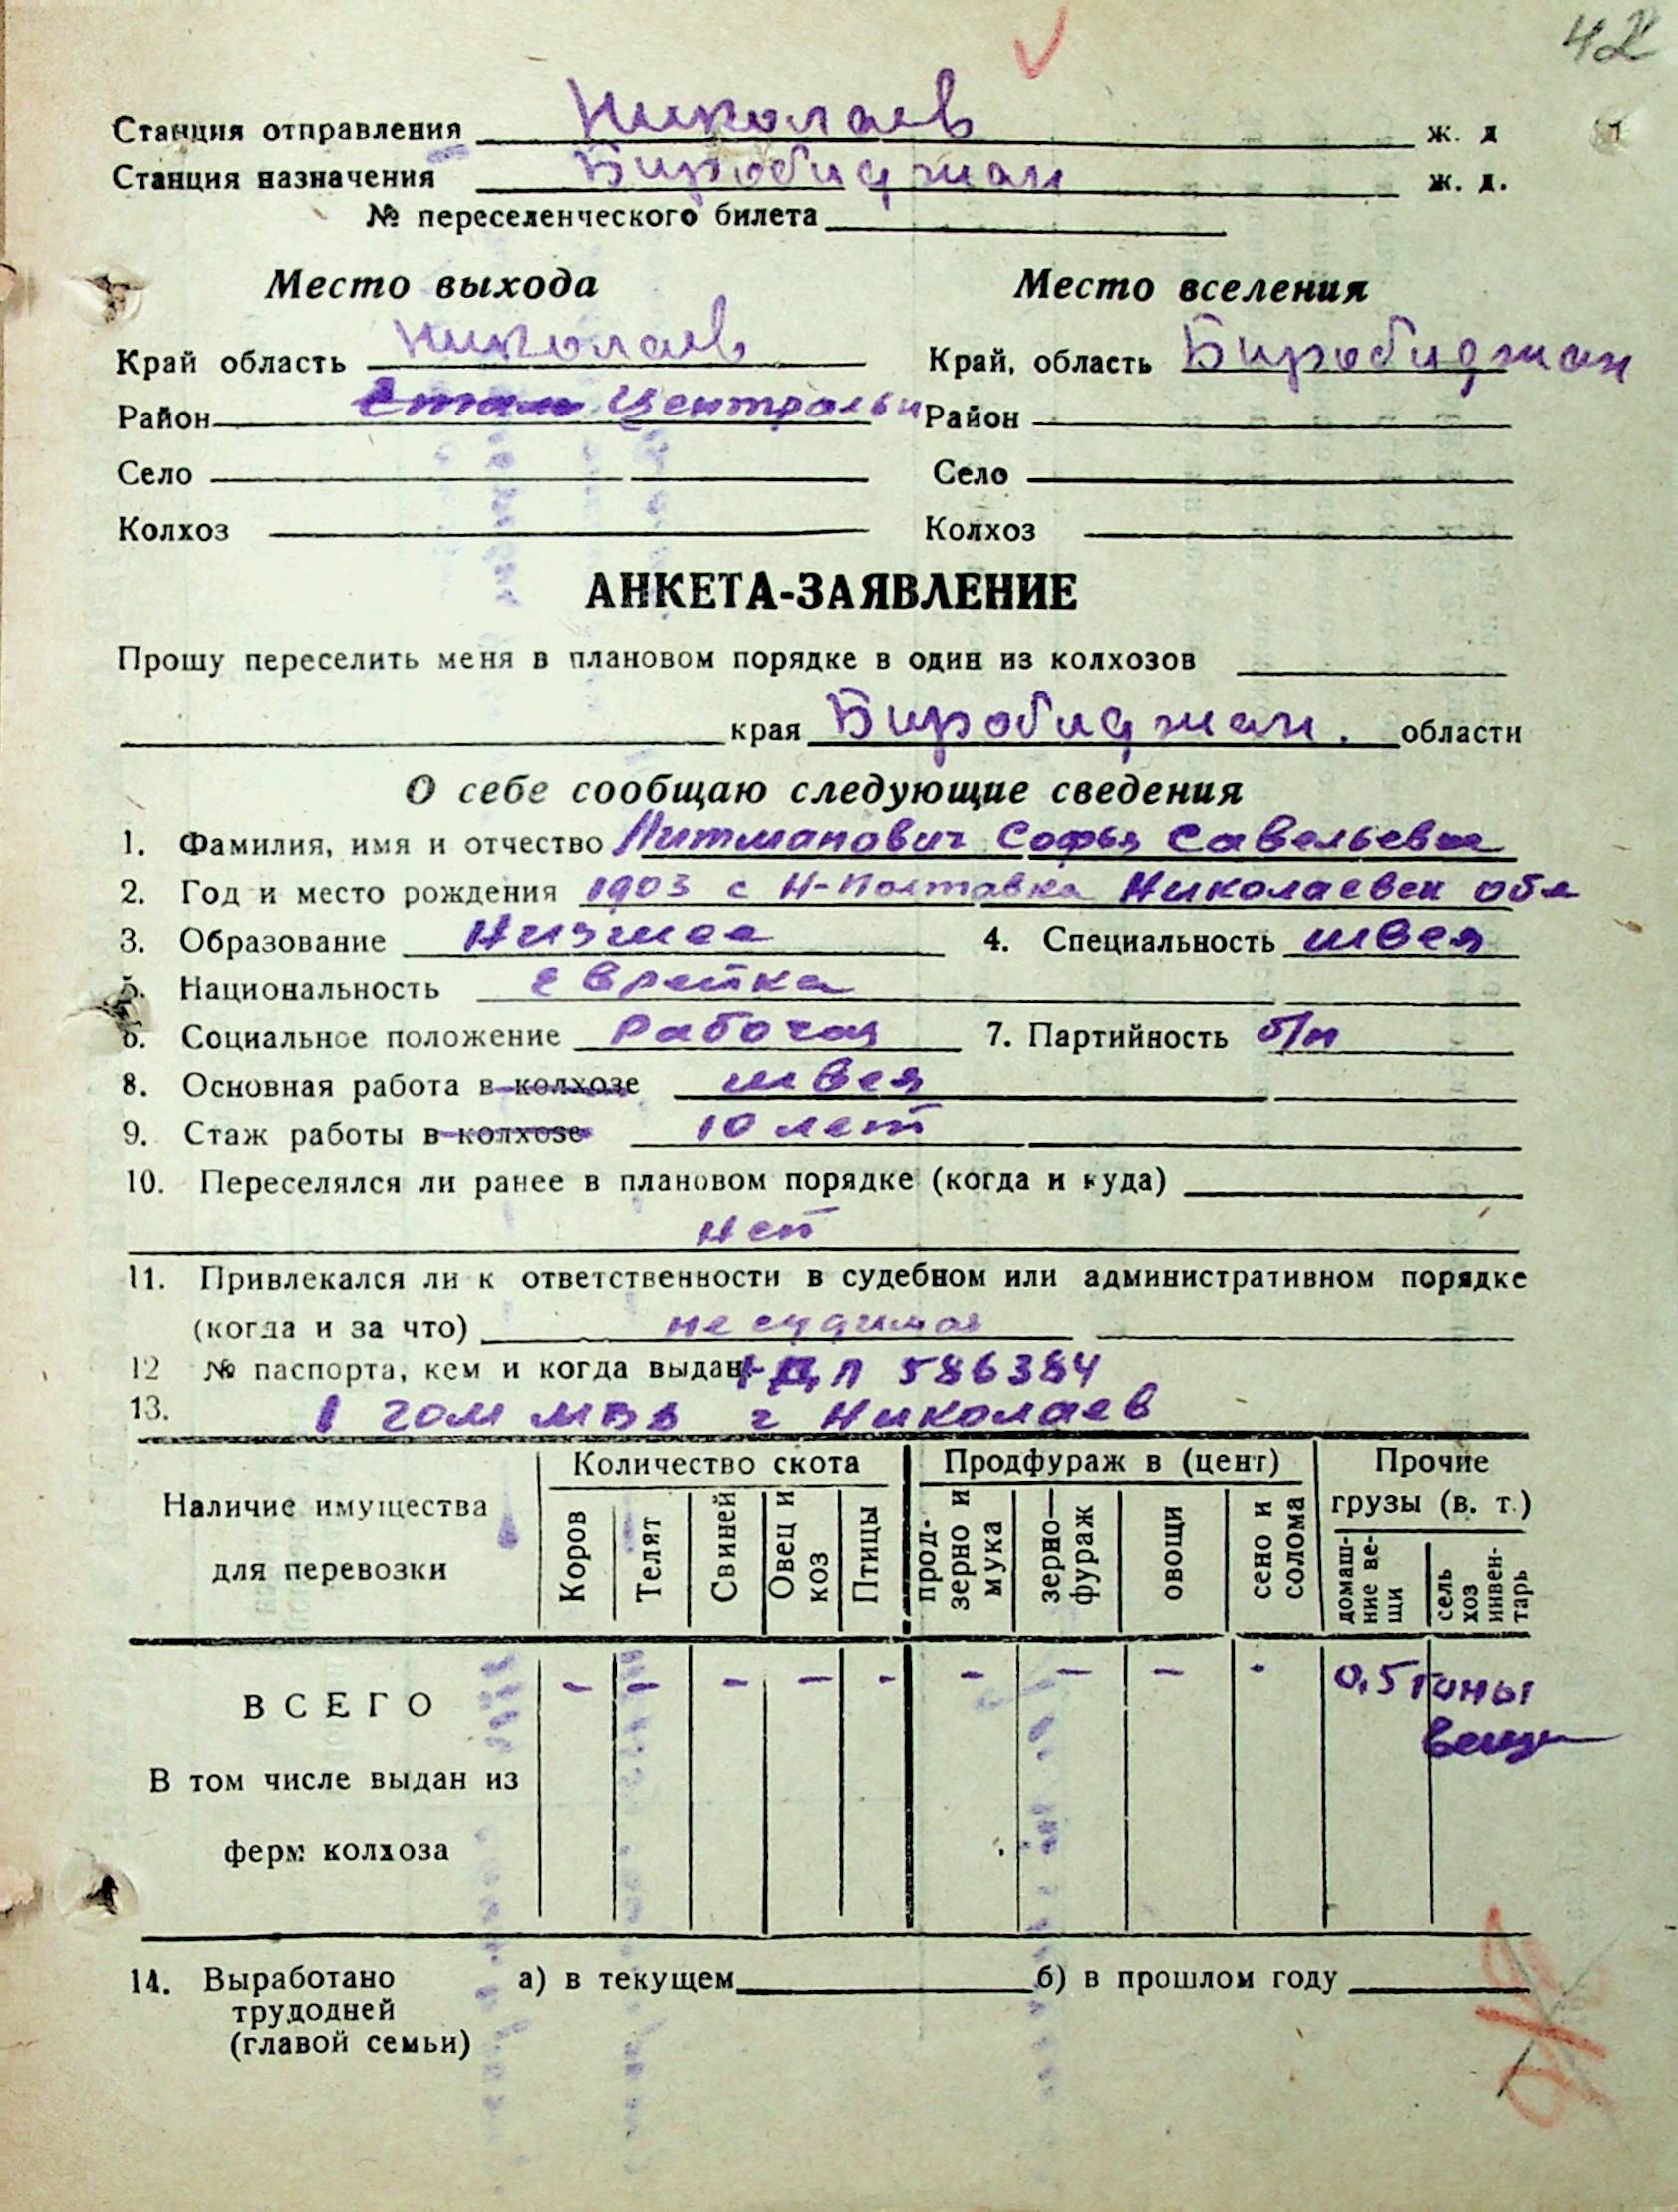 42
Станция отправления Николаев ж. д
Станция назначения Биробиджан ж. д.
№ переселенческого билета
Место выхода Место вселения
Край область Николаев Край, область Биробиджан
Район Центральн Район
Село Село
Колхоз Колхоз
АНКЕТА-ЗАЯВЛЕНИЕ
Прошу переселить меня в плановом порядке в один из колхозов
края Биробиджан. области
О себе сообщаю следующие сведения
1. Фамилия, имя и отчество Литманович Софья Савельевна
2. Год и место рождения 1903 с Н-Полтавка Николаевск обл
3. Образование Низшее 4. Специальность швея
5. Национальность еврейка
6. Социальное положение Рабочая 7. Партийность б/п
8. Основная работа в колхозе швея
9. Стаж работы в колхозе 10 лет
10. Переселялся ли ранее в плановом порядке (когда и куда)
нет
11. Привлекался ли к ответственности в судебном или административном порядке
(когда и за что) не судимая
12 № паспорта, кем и когда выдан 586384
13. 1 гом МВД г Николаев
Наличие имущества для перевозки
Количество скота Продфураж в (цент) Прочие грузы (в. т.)
Коров Телят Свиней Овец и коз Птицы прод-зерно и мука зерно—фураж овощи сено и солома домаш-ние ве-щи сель хоз инвен-тарь
ВСЕГО - - - - - - - - - 0,5 тоны
вещи
В том числе выдан из
ферм колхоза
14. Выработано а) в текущем б) в прошлом году
трудодней
(главой семьи)